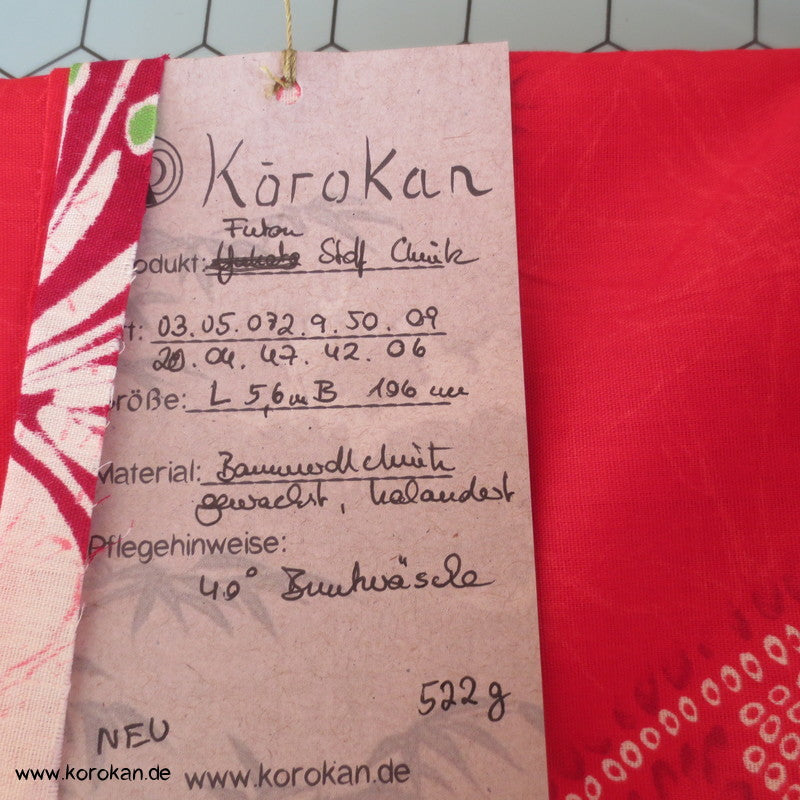 Kōrokan
Futon
odukt: Stoff Chintz
t: 03.05.072.9.50.09
20.04.47.42.06
röße: L 5,6m B 196 cm
Material: Baumwollchintz
gewachst, kalandert
Pflegehinweise:
40° Buntwäsche
522 g
NEU
www.korokan.de
www.korokan.de